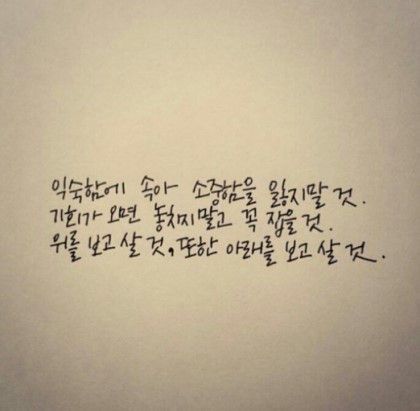 익숙함에 속아 소중함을 잃지말 것.
기회가 오면 놓치지말고 꼭 잡을 것.
위를 보고 살 것, 또한 아래를 보고 살 것.